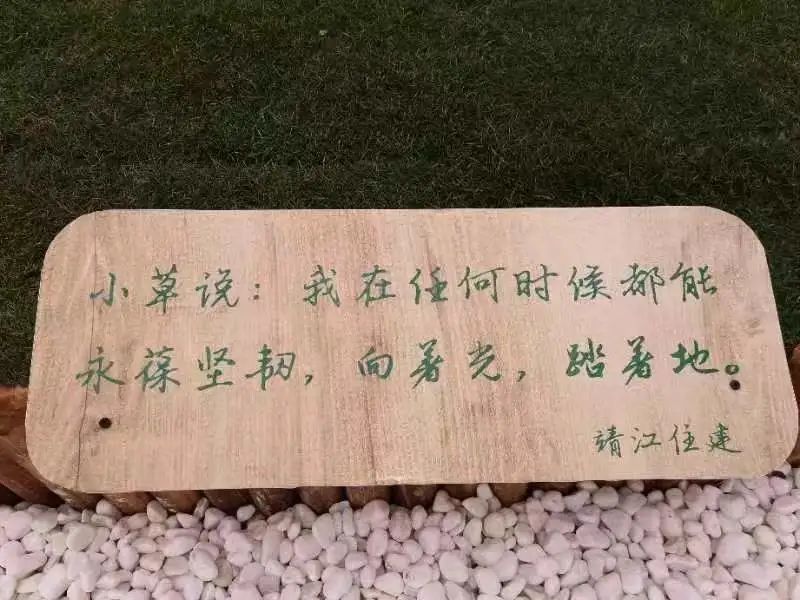 小草说：我在任何时候都能
永葆坚韧，向着光，踏着地。
靖江住建